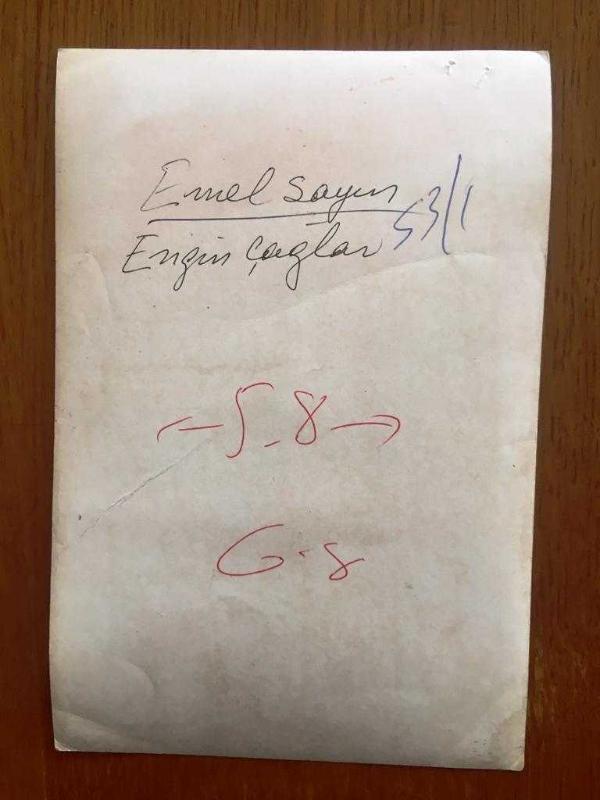 Emel Sayın
Engin Çağlar 53/1
←5.8→
G.S